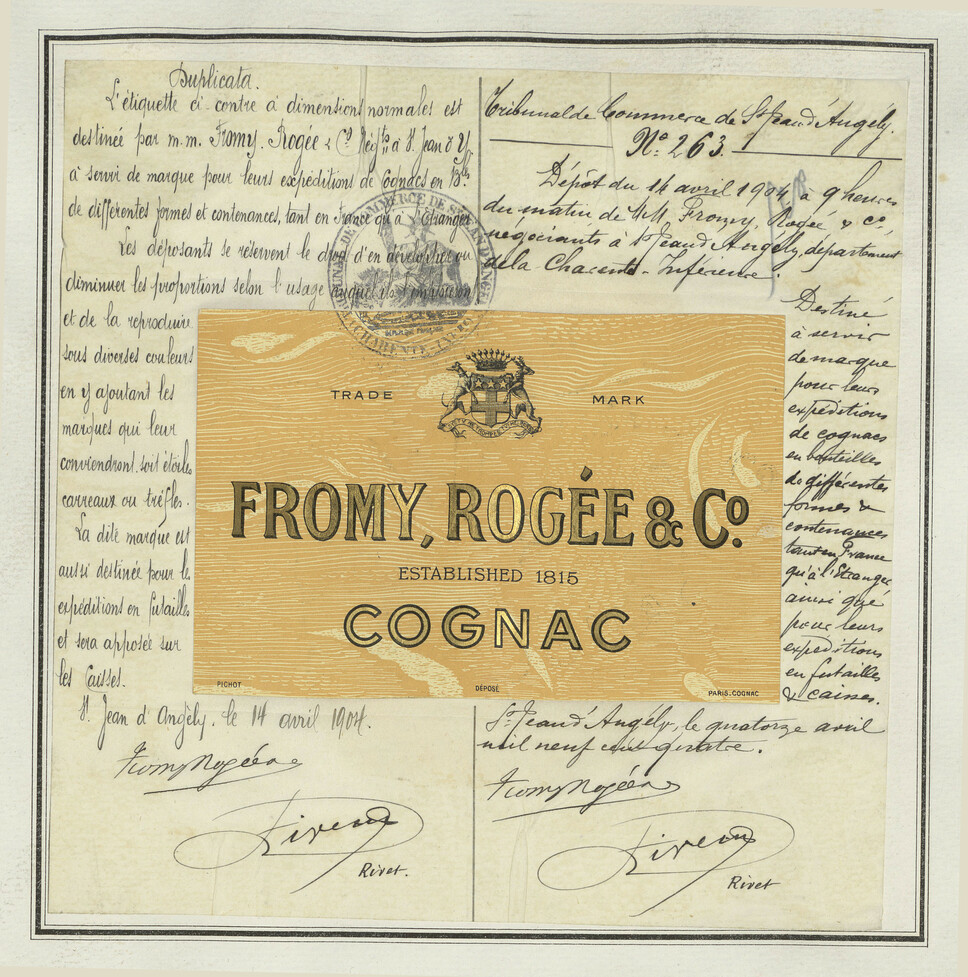 Duplicata.
L'étiquette ci-contre à dimensions normales est
destinée par m.m. Fromy. Rogée & Cº Négts à St Jean d'Ay
à servir de marque pour leurs expéditions de Cognacs en Blles
de différentes formes et contenances, tant en France qu'à l'Étranger
Les déposants se réservent le droit d'en développer ou
diminuer les proportions selon l'usage auquel ils
et de la reproduire
sous diverses couleurs
en y ajoutant les
marques qui leur
conviendront soit étoiles
carreaux ou trèfles.
La dite marque est
aussi destinée pour le
expéditions en futailles
et sera apposée sur
les Caisses.
St Jean d'Angély. le 14 avril 1904.
Fromy Rogée
Rivet.
Tribunal de Commerce de St Jean d'Angély.
Nº 263.
Dépôt du 14 avril 1904 à 9 heures
du matin de MM. Fromy, Rogée & Cº,
négociants à St Jean d'Angély, département
de la Charente-Inférieure.
Destiné
à servir
de marque
pour leurs
expéditions
de cognacs
en bouteilles
de différentes
formes &
contenances
tant en France
qu'à l'Etranger
ainsi que
pour leurs
expéditions
en futailles
& caisses.
St Jean d'Angély, le quatorze avril
mil neuf cent quatre.
Fromy Rogée
Rivet
TRADE MARK
FROMY, ROGÉE & Cº.
ESTABLISHED 1815
COGNAC
PICHOT
DÉPOSÉ
PARIS. COGNAC
TRIBUNAL DE COMMERCE DE ST JEAN D'ANGÉLY
CHARENTE INFRE
RÉPUBLIQUE FRANÇAISE